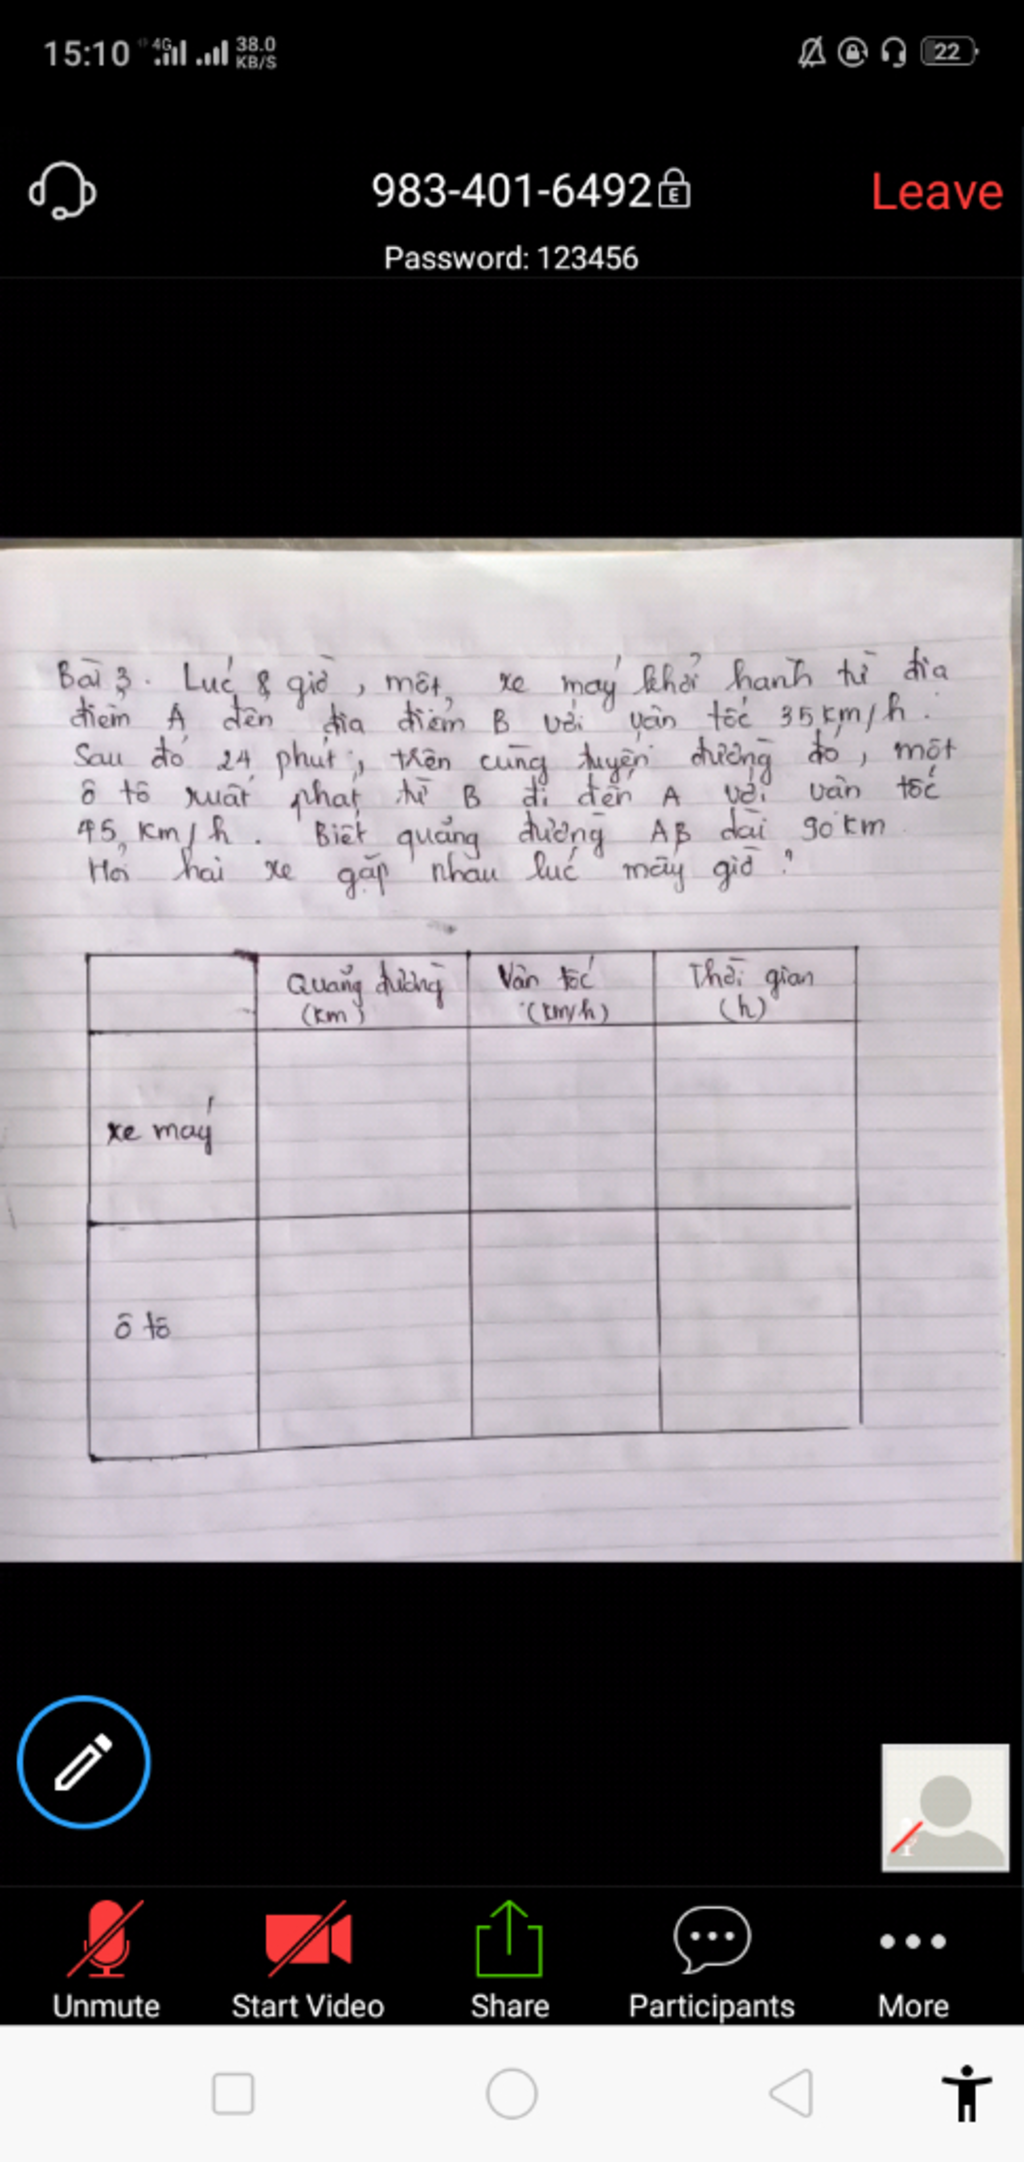 15:10 4G 38.0 KB/S 22
983-401-6492 E Leave
Password: 123456
Bài 3. Lúc 8 giờ, một xe máy khởi hành từ địa
điểm A đến địa điểm B với vận tốc 35km/h.
Sau đó 24 phút, trên cùng tuyến đường đó, một
ô tô xuất phát từ B đi đến A với vận tốc
45 km/h. Biết quãng đường AB dài 90 km
Hỏi hai xe gặp nhau lúc mấy giờ?
Quãng đường (km) Vận tốc (km/h) Thời gian (h)
xe máy
ô tô
Unmute Start Video Share Participants More